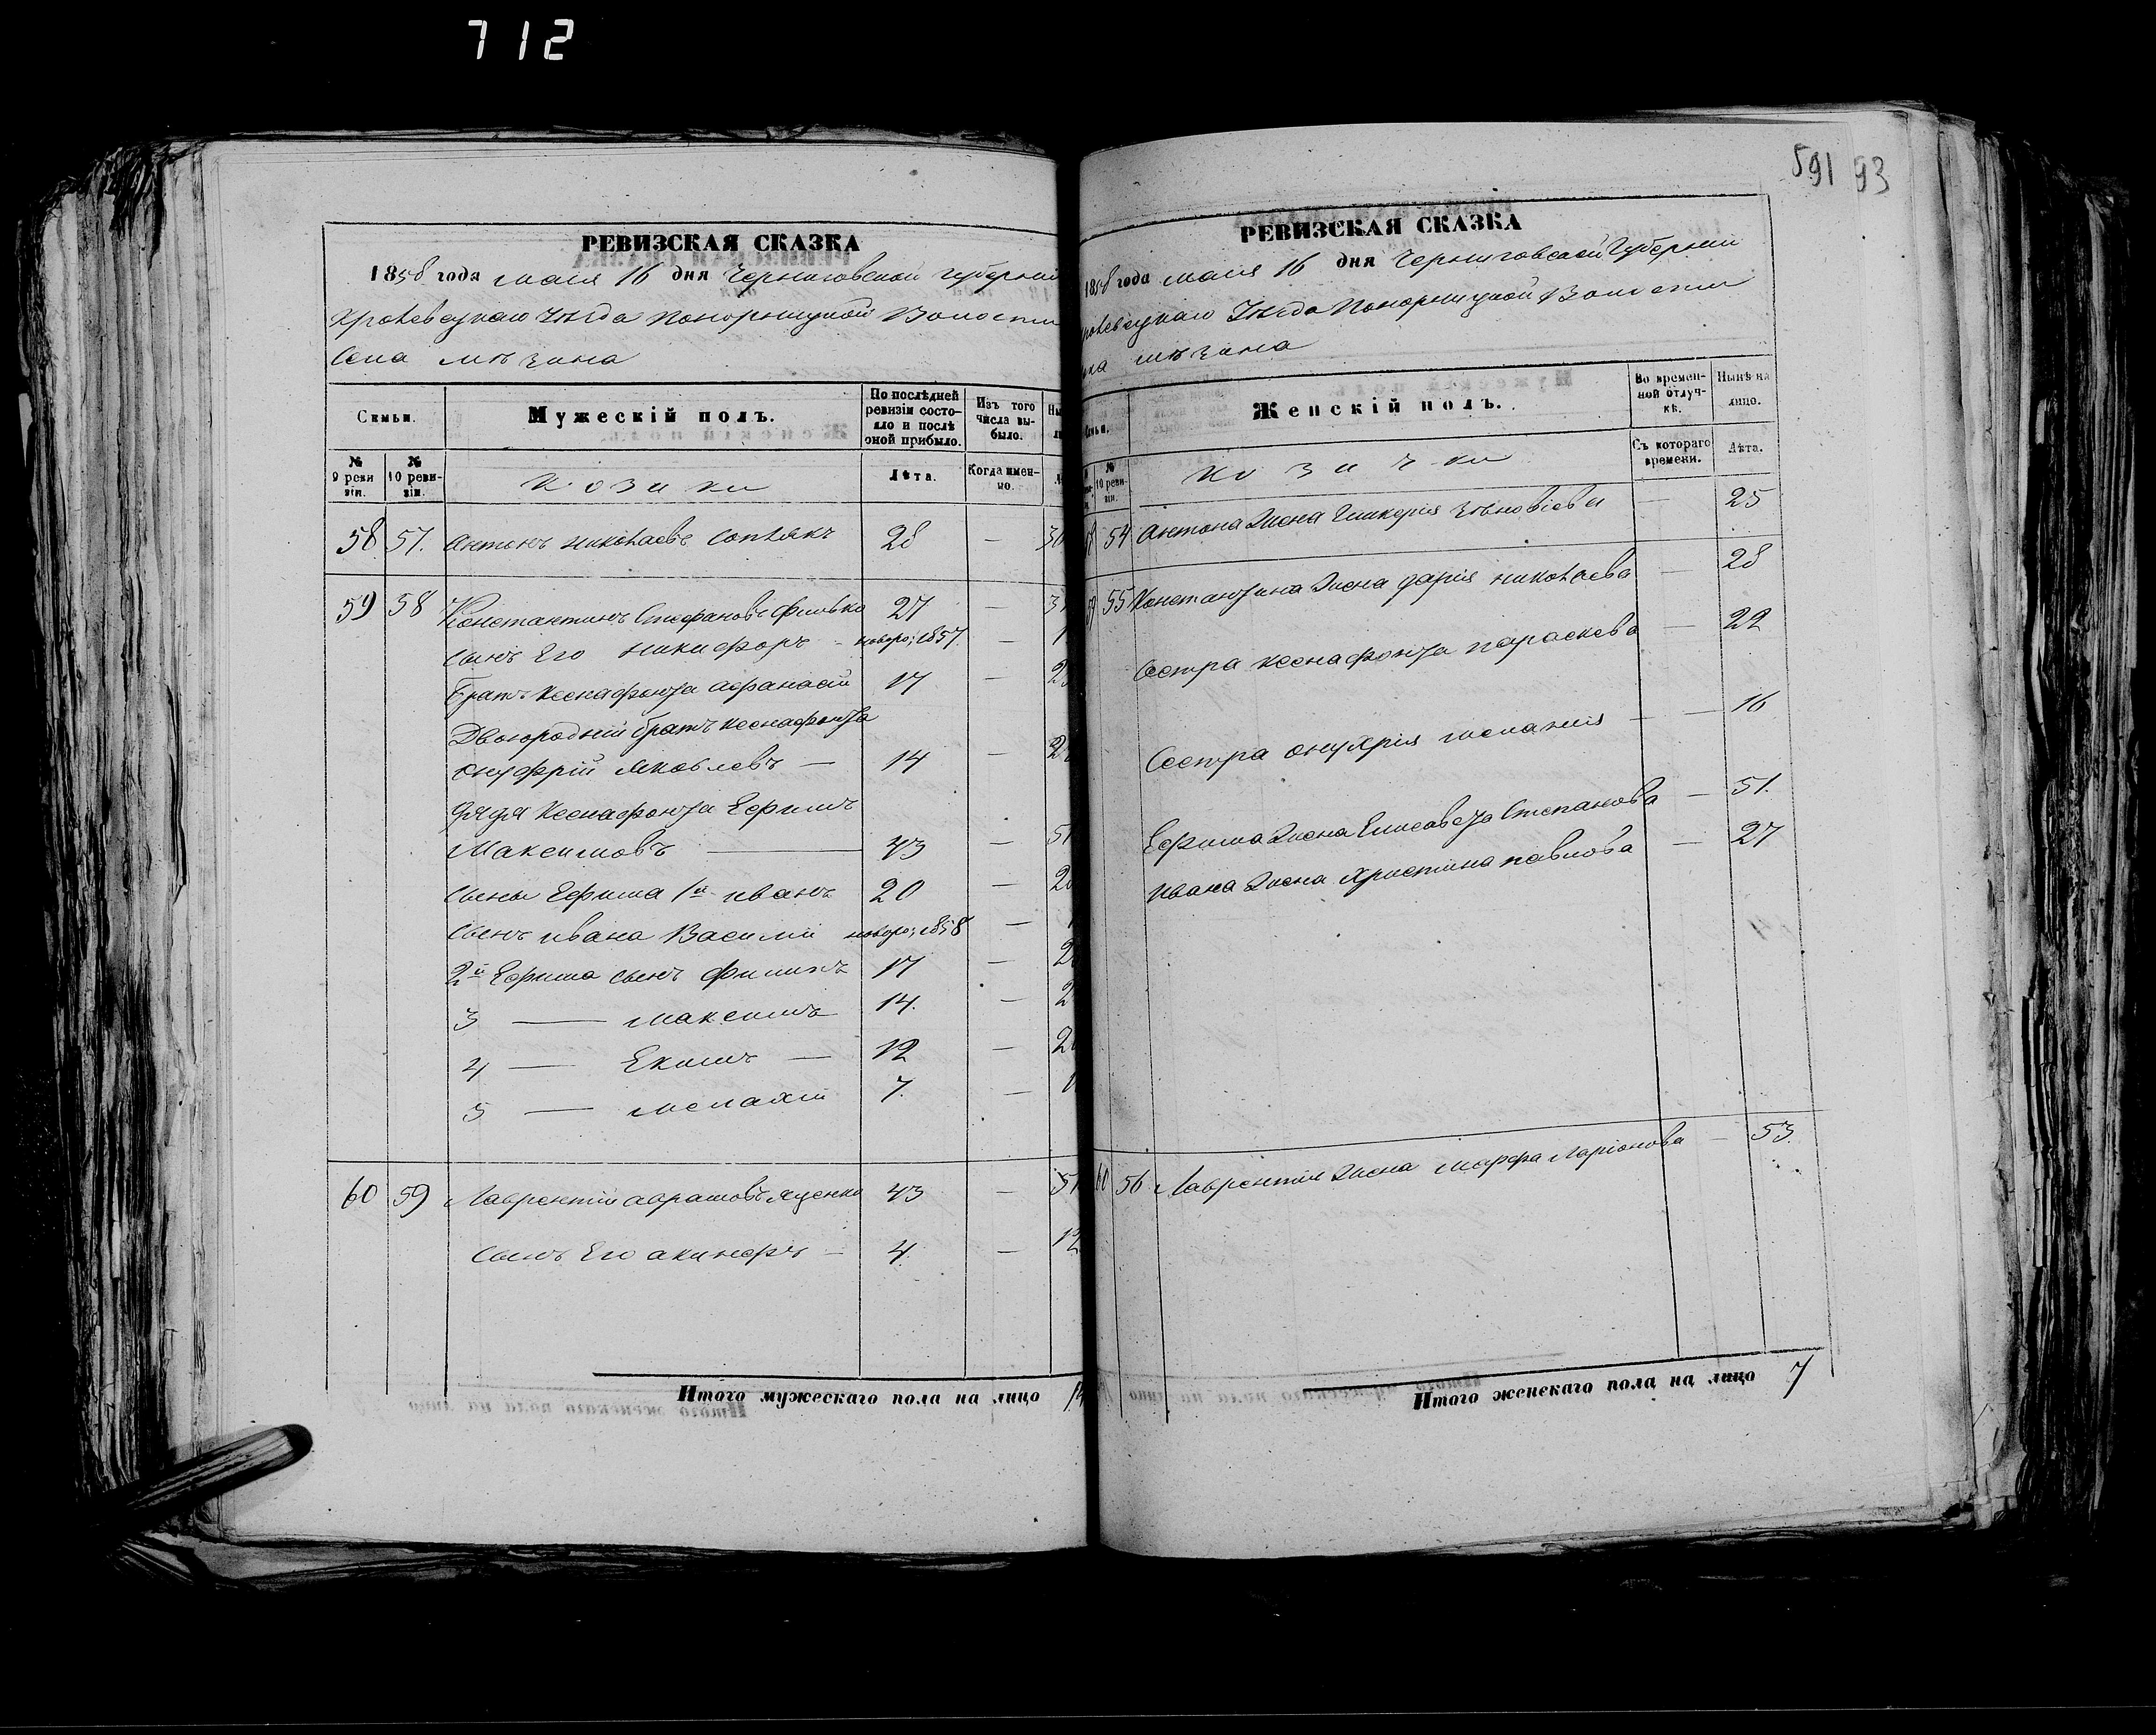 712
РЕВИЗСКАЯ СКАЗКА
1858 года маия 16 дня Черниговской губернии
Кролевецкаго Уѣзда Понорницкой Волости
Села Мѣзина
Семьи. Мужескій полъ. По послѣдней ревизіи состояло и послѣ оной прибыло. Изъ того числа выбыло.
№ 9 ревизіи. № 10 ревизіи. Козаки Лѣта. Когда именно.
58 57. Антонъ Николаевъ 28 —
59 58 Константинъ Стефановъ Филько 27 —
Сынъ Его Никифоръ – новоро; 1857. —
Братъ Ксенафонта Афанасій 17 —
Двоюродній братъ Ксенафонта
Онуфрій Яковлевъ — 14 —
Дядя Ксенафонта Ефимъ
Максимовъ — 43 — 51
Сыны Ефима 1й Иванъ 20 —
Сынъ Ивана Василій новоро; 1858 —
2й Ефима сынъ Филипъ 17 —
3 — Максимъ 14. —
4 — Екимъ — 12 —
5 — Меласій 7. —
60 59 Лаврентій Аврамовъ Яценко 43 — 51
Сынъ Его Акинфъ — 4. — 12
Итого мужескаго пола на лицо 14
591 93
РЕВИЗСКАЯ СКАЗКА
1858 года маия 16 дня Черниговской Губернии
Уѣзда Понорницкой Волости
Мѣзина
Женскій полъ. Во временной отлучкѣ. Нынѣ на лицо.
№ 10 ревизіи. Козачки Съ котораго времени. Лѣта.
54 Антона Жена Гликерія — 25
55 Константина Жена Дарія Николаева — 28
Сестра Ксенафонта Параскева — 22
Сестра Онуфрія — 16
Ефима Жена Елисавета Степанова — 51.
Ивана Жена Христина Павлова — 27
60 56 Лаврентія Жена Марфа Ларіонова — 53.
Итого женскаго пола на лицо 7